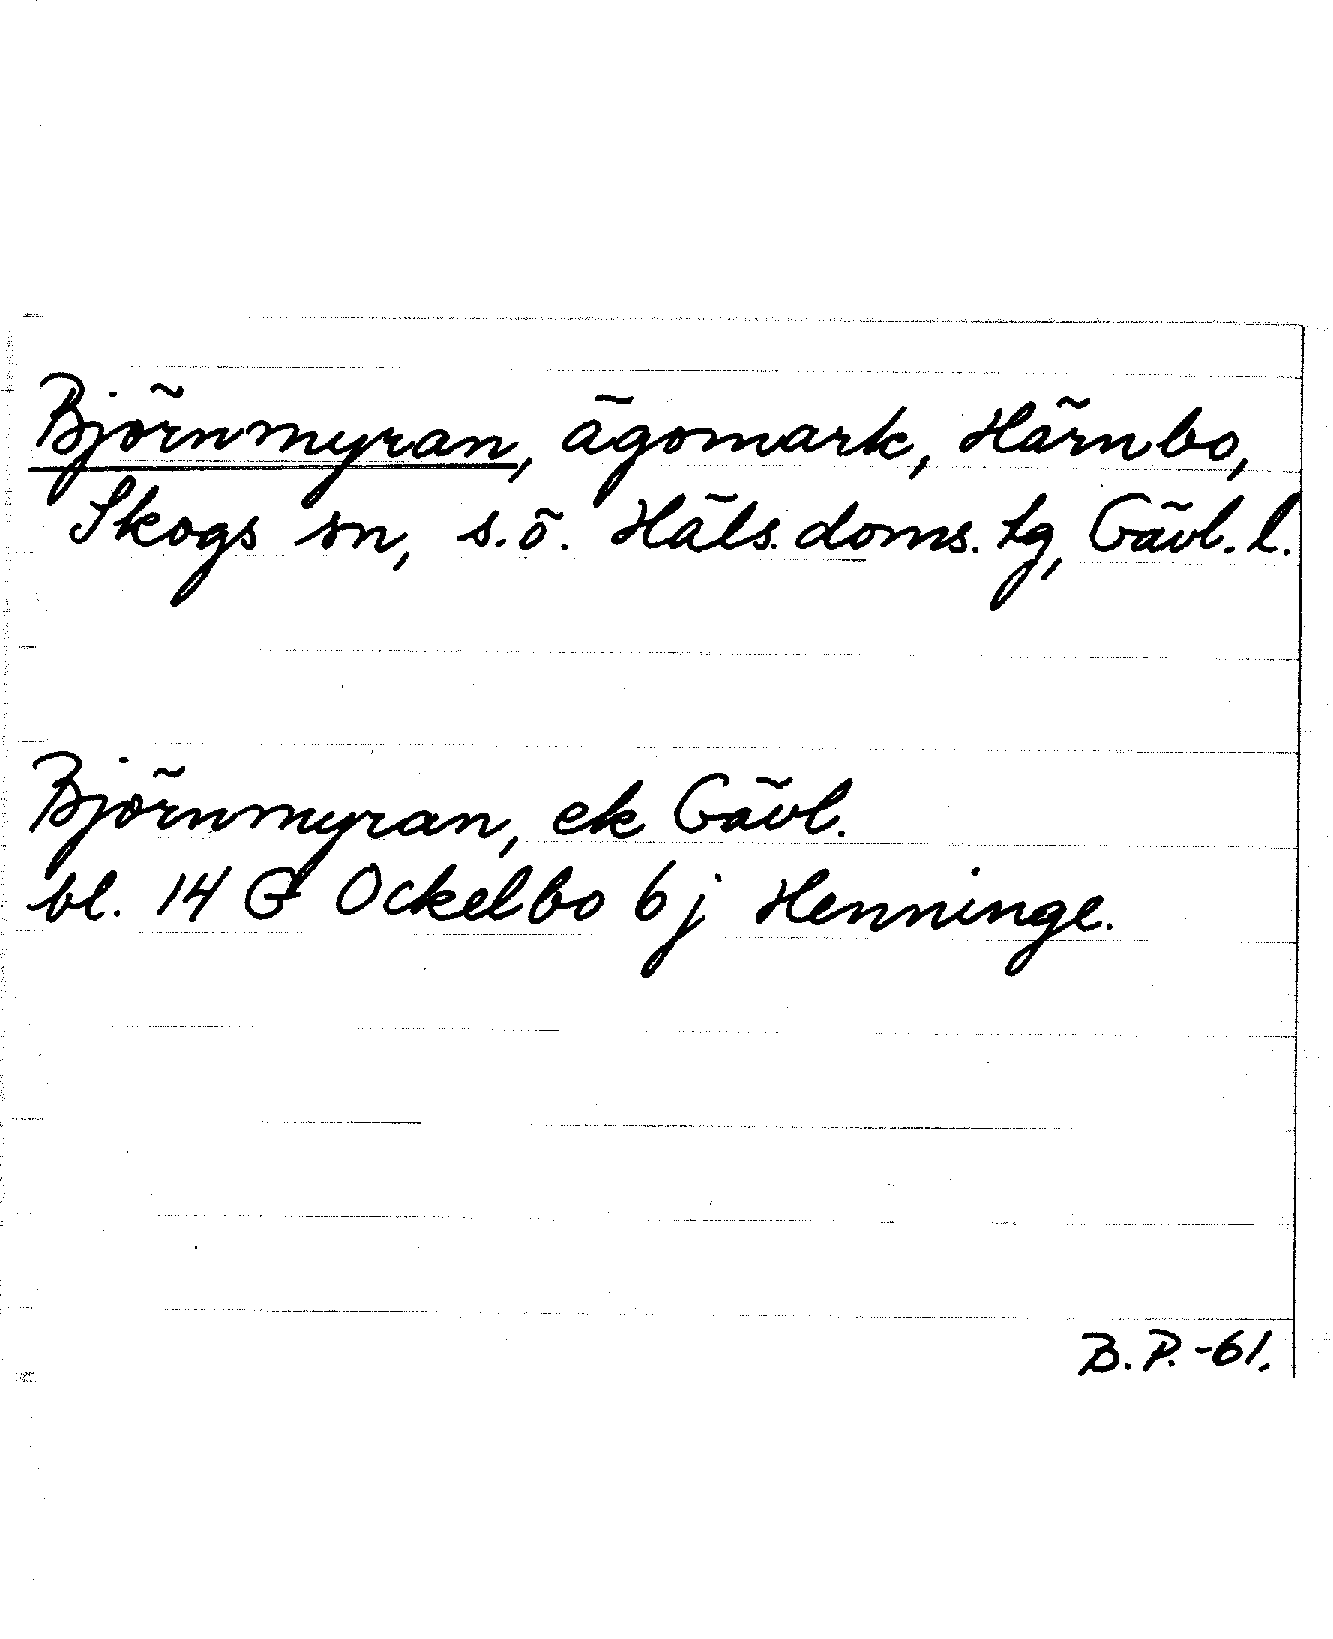 Björnmyran, ägomark, Härnbo,
Skogs sn, s.ö. Häls. doms. tg, Gävl. l.
Björnmyran, ek Gävl.
bl. 14 G Ockelbo 6 j Henninge.
B. P. -61.